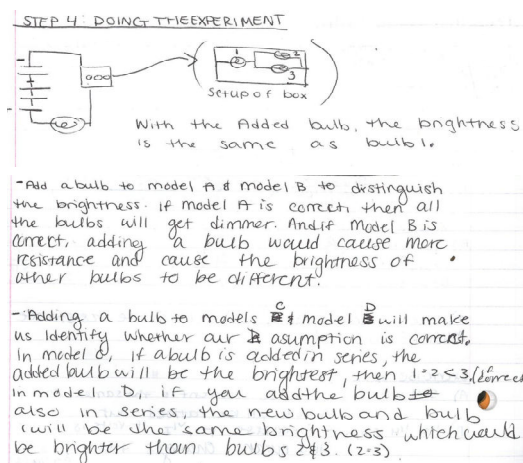 STEP 4: DOING THE EXPERIMENT
1
2
3
000
Setup of box
With the Added bulb, the brightness
is the same as bulb 1.
- Add a bulb to model A & model B to distinguish
the brightness. If model A is correct, then all
the bulbs will get dimmer. And if Model B is
correct, adding a bulb would cause more
resistance and cause the brightness of
other bulbs to be different.
- Adding a bulb to models C & model D will make
us Identify whether our asumption is correct.
In model C, if a bulb is added in series, the
added bulb will be the brightest, then 1=2<3. (correct
In model D, if you add the bulb to
also in series the new bulb and bulb
1 will be the same brightness which would
be brighter than bulbs 2&3. (2=3)